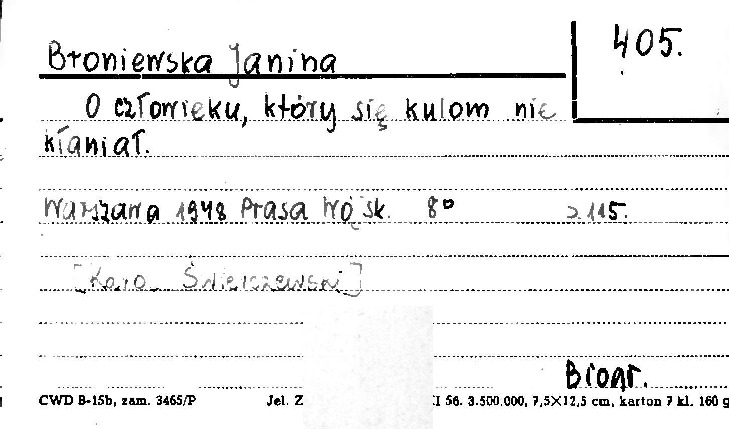 405.
Broniewska Janina
O człowieku, który się kulom nie
kłaniał.
Warszawa 1948 Prasa Wojsk. 8° s. 115.
[Karol Świerczewski]
Biogr.
CWD B-15b, zam. 3465/P Jel. Z I 56. 3.500.000, 7,5×12,5 cm, karton 7 kl. 160 g